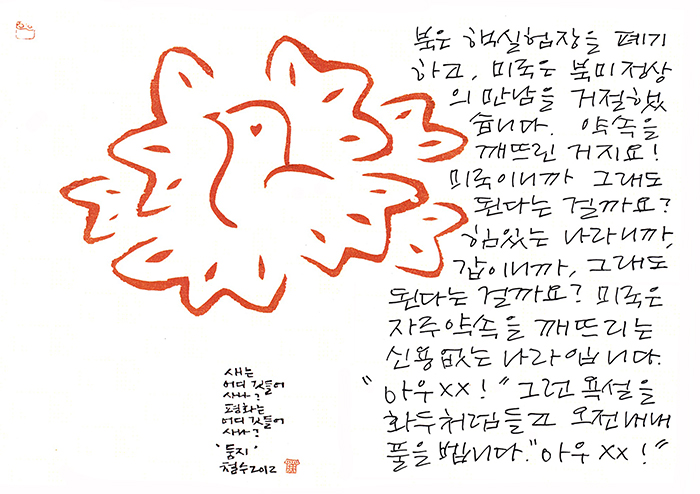 북은 핵실험장을 폐기
하고, 미국은 북미정상
의 만남을 거절했
습니다. 약속을
깨뜨린 거지요!
미국이니까 그래도
된다는 걸까요?
힘있는 나라니까,
갑이니까, 그래도
된다는 걸까요? 미국은
자주 약속을 깨뜨리는
신용없는 나라입니다.
"아우 XX!" 그런 욕설을
화두처럼 들고 오전내내
풀을 뱁니다. "아우 XX!"
새는
어디 깃들어
사나?
평화는
어디 깃들어
사나?
'둥지'
철수 2012